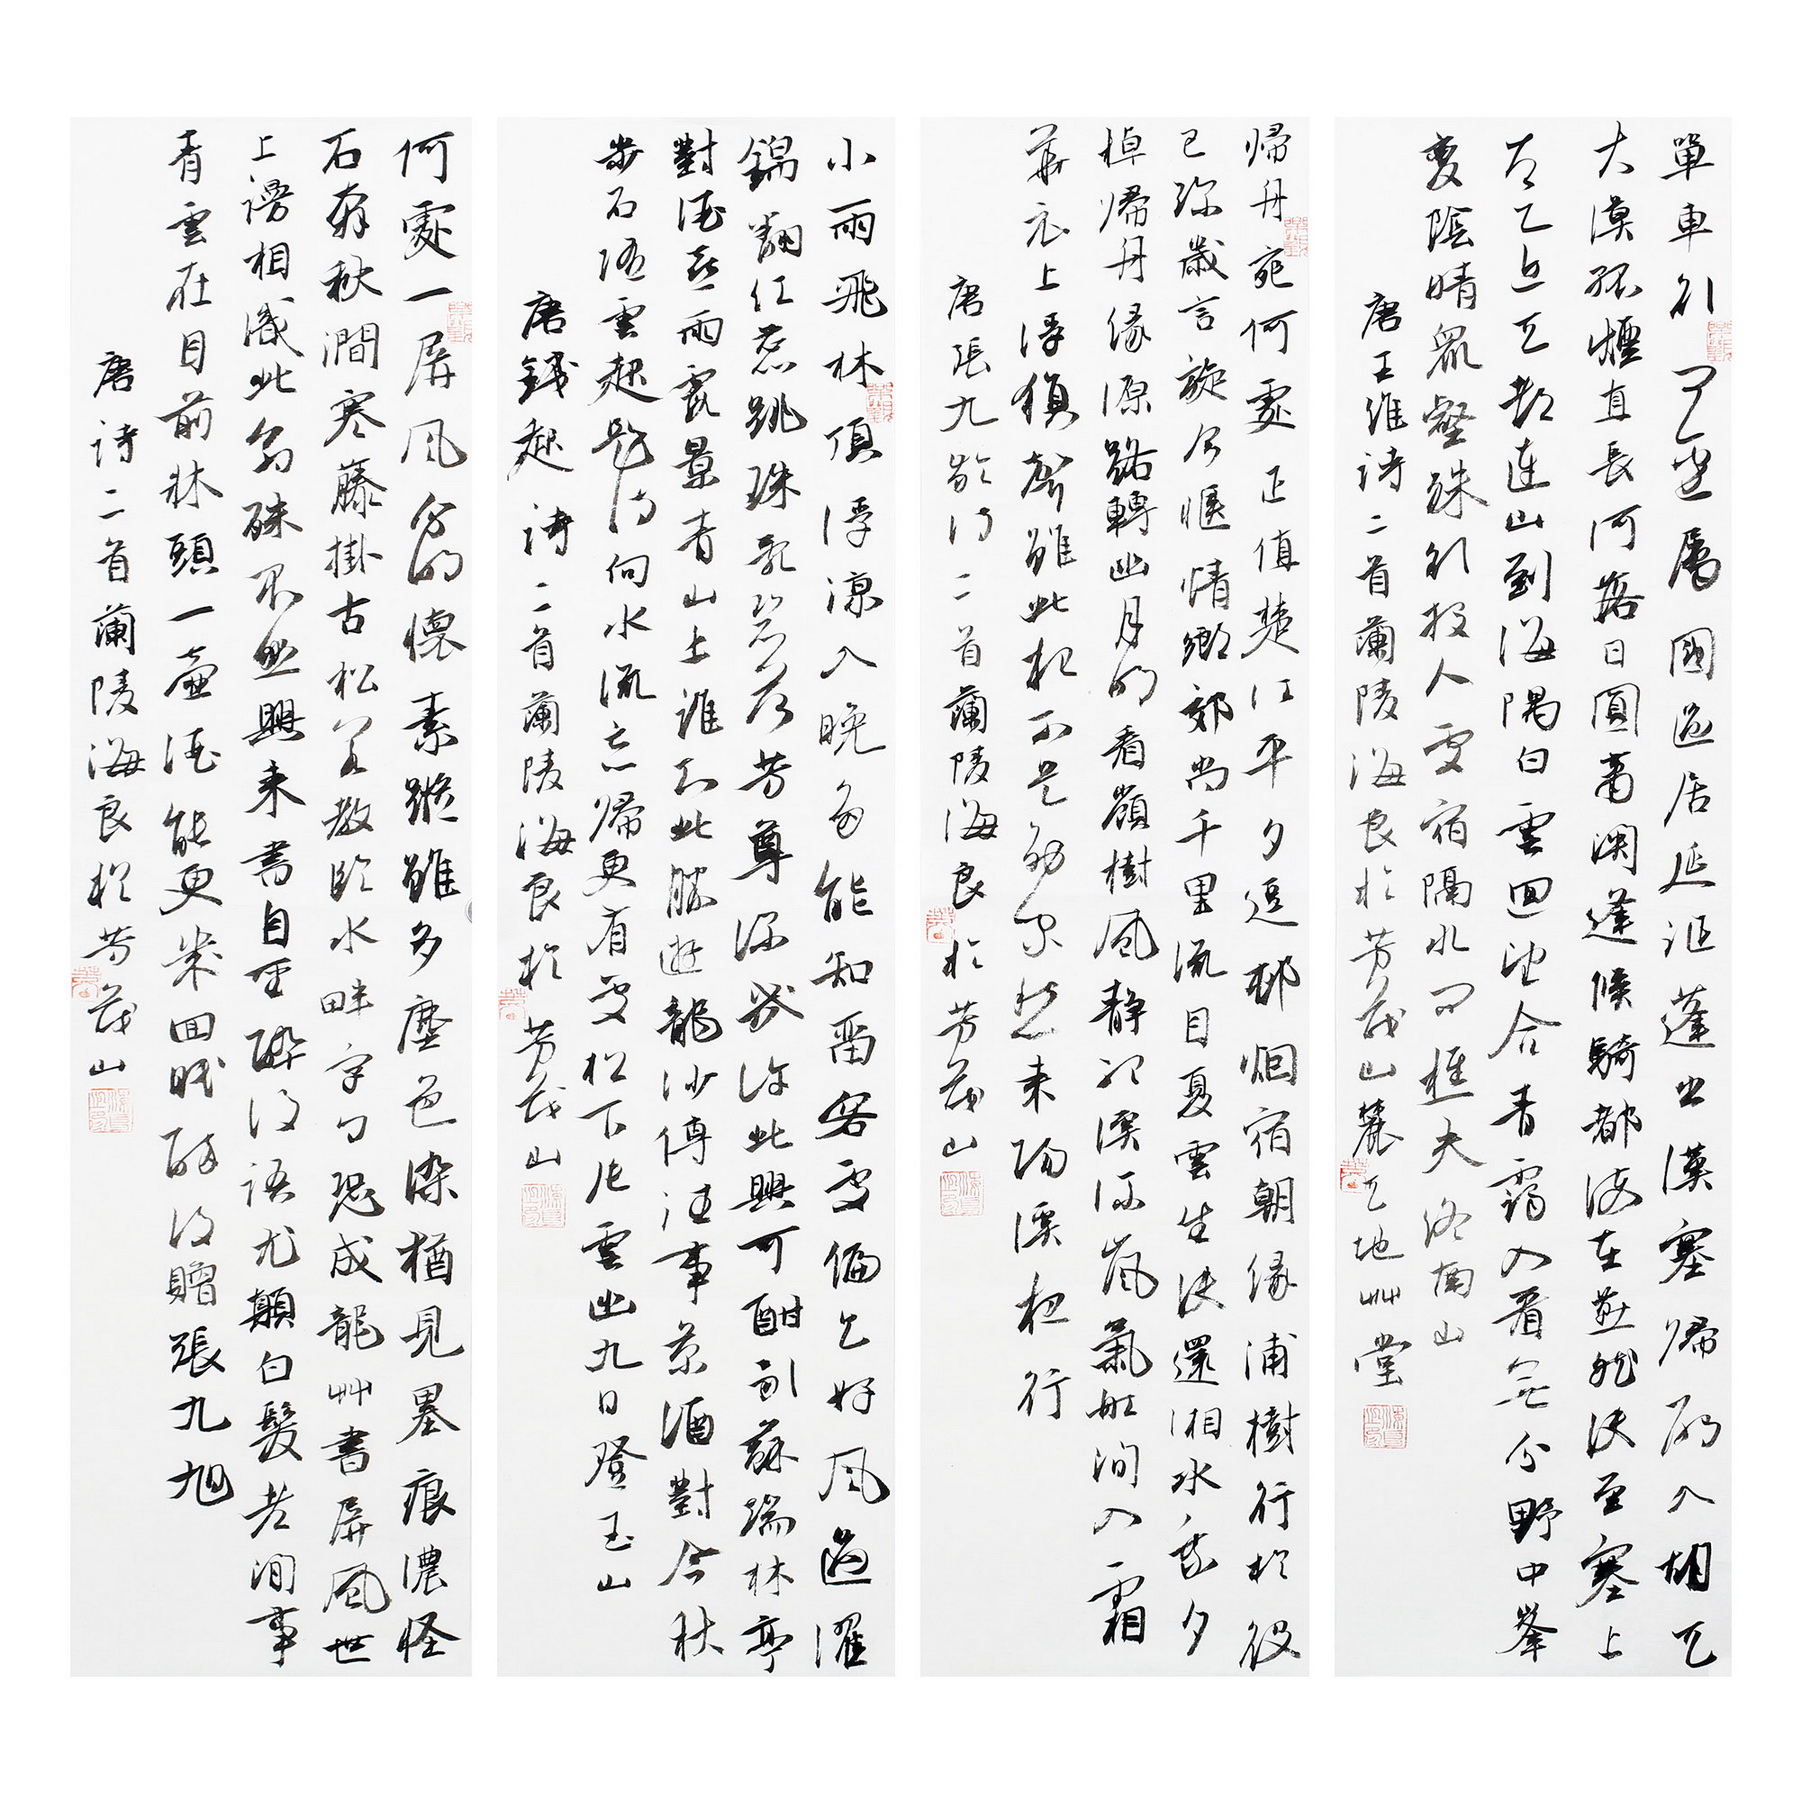 單車欲問邊屬國過居延征蓬出漢塞歸雁入胡天
大漠孤煙直長河落日圓蕭關逢候騎都護在燕然使至塞上
太乙近天都連山到海隅白雲回望合青靄入看無分野中峯
變陰晴眾壑殊欲投人處宿隔水問樵夫終南山
唐王維詩二首蘭陵海良於芳茂山麓天地艸堂
歸舟宛何處正值楚江平夕逗邨烟宿朝緣浦樹行於役
已彌歲言旋今愜情鄉郊尚千里流目夏雲生使還湘水乘夕
棹歸舟緣源路轉幽月明看嶺樹風靜聽溪流嵐氣船間入霜
華衣上浮猿聲雖此夜不是別家愁耒陽溪夜行
唐張九齡詩二首蘭陵海良於芳茂山
小雨飛林頂浮涼入晚多能知留客處偏與好風過濯
錦翻紅蕊跳珠亂碧荷芳尊深幾許此興可酣歌蘇端林亭
對酒喜雨霞景青山上誰知此勝遊龍沙傳往事菊酒對今秋
步石隨雲起題詩向水流忘歸更有處松下片雲幽九日登玉山
唐錢起詩二首蘭陵海良於芳茂山
何處一屏風分明懷素蹤雖多塵色染猶見墨痕濃怪
石奔秋澗寒藤掛古松若教臨水畔字字恐成龍艸書屏風世
上謾相識此翁殊不然興來書自聖醉後語尤顛白髮老閒事
青雲在目前牀頭一壺酒能更幾回眠醉後贈張九旭
唐詩二首蘭陵海良於芳茂山